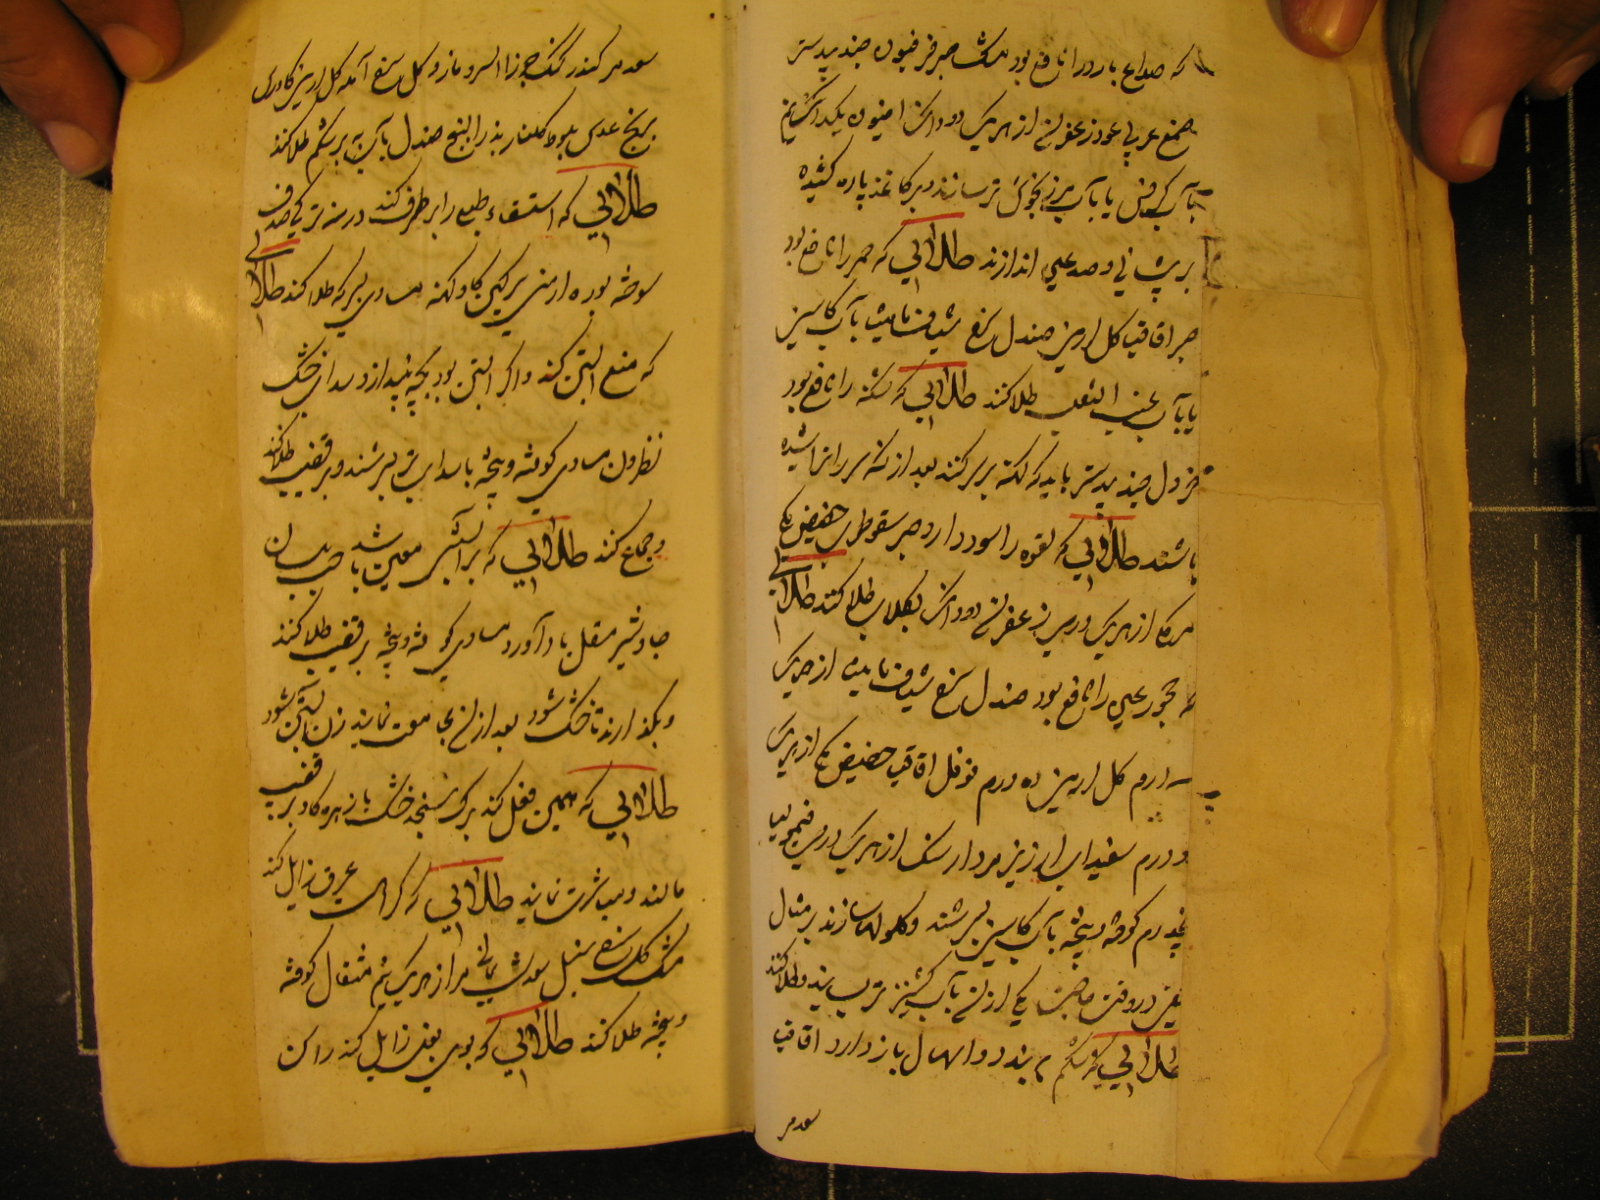 که صداع بارد را نافع بود مرمک صبر فرفیون جندبیدستر
صمغ عربی عود زعفران از هریک دو دانک افیون یکدانک و نیم
بآب کرفس یا بآب مرزنجوش تر سازند و بر کاغذ پاره کشیده
بر پیشانی و صدغین اندازند طلائی که حمره را نافع بود
صبر اقاقیا کل ارمنی صندل سرخ شیاف مامیثا بآب کاسنی
یا بآب عنب الثعلب طلا کنند طلائی که سکته را نافع بود
خردل جندبیدستر باید که سکته بر سر کنند بعد از آنکه سر را تراشیده
باشند طلائی که لقوه را سود دارد صبر سقوطری حضیض مکی
مرمکا از هریک درمی زعفران دو دانک بکلاب طلا کنند طلائی
که را نافع بود صندل سرخ شیاف مامیثا از هریک
سه درم کل ارمنی ده درم فوفل اقاقیا حضیض مکی از هریک
دو درم سفیداب ارزیز مردارسنک از هریک درمی قیمولیا
پنجدرم کوفته و بیخته بآب کاسنی بسرشند و کلولها سازند بر مثال
در وقت حاجت یکی از آن بآب کشنیز تر بسایند و طلا کنند
طلائی که شکم به بندد و اسهال باز دارد اقاقیا
سعد مر
سعد مر کندر کنک جوز السرو مازو کل سرخ آمله کل ارمنی کاورس
برنج عدس بلوط کلنار بذرالبنج صندل بآب به بر شکم طلا کنند
طلائی که استسقاء طبلی را برطرف کند درمنه ترکی صدف
سوخته بوره ارمنی سرکین کاو کهنه مساوی بسرکه طلا کنند طلائی
که منع آبستن کند و اگر آبستن بود بچه بیندازد سداب خشک
نظرون مساوی کوفته و بیخته بآب سداب تر بسرشند و بر قضیب طلا کنند
و جماع کنند طلائی که بر آبستنی معین باشد حب بلسان
جاوشیر مقل بادآورد مساوی کوفته و بیخته بر قضیب طلا کنند
و بگذارند تا خشک شود بعد از آن مجامعت نمایند زن آبستن شود
طلائی که همین فعل کند برک خشک با زهره کاو بر قضیب
مالند و مباشرت نمایند طلائی که کراهت عرق زایل کند
مشک کل سرخ سنبل سعد شب یمانی مر از هریک نیم مثقال کوفته
و بیخته طلا کنند طلائی که بوی بغل زایل کند راکن